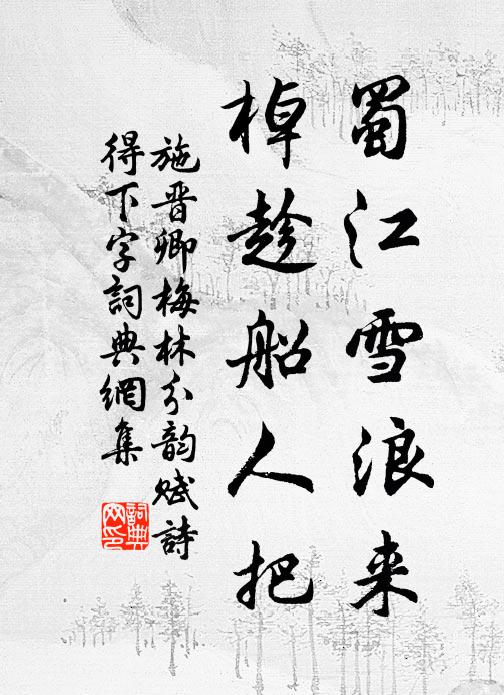 蜀江雪浪来
棹趁船人把
施晋卿梅林分韵赋詩
得下字詞典網集
詞典
网印